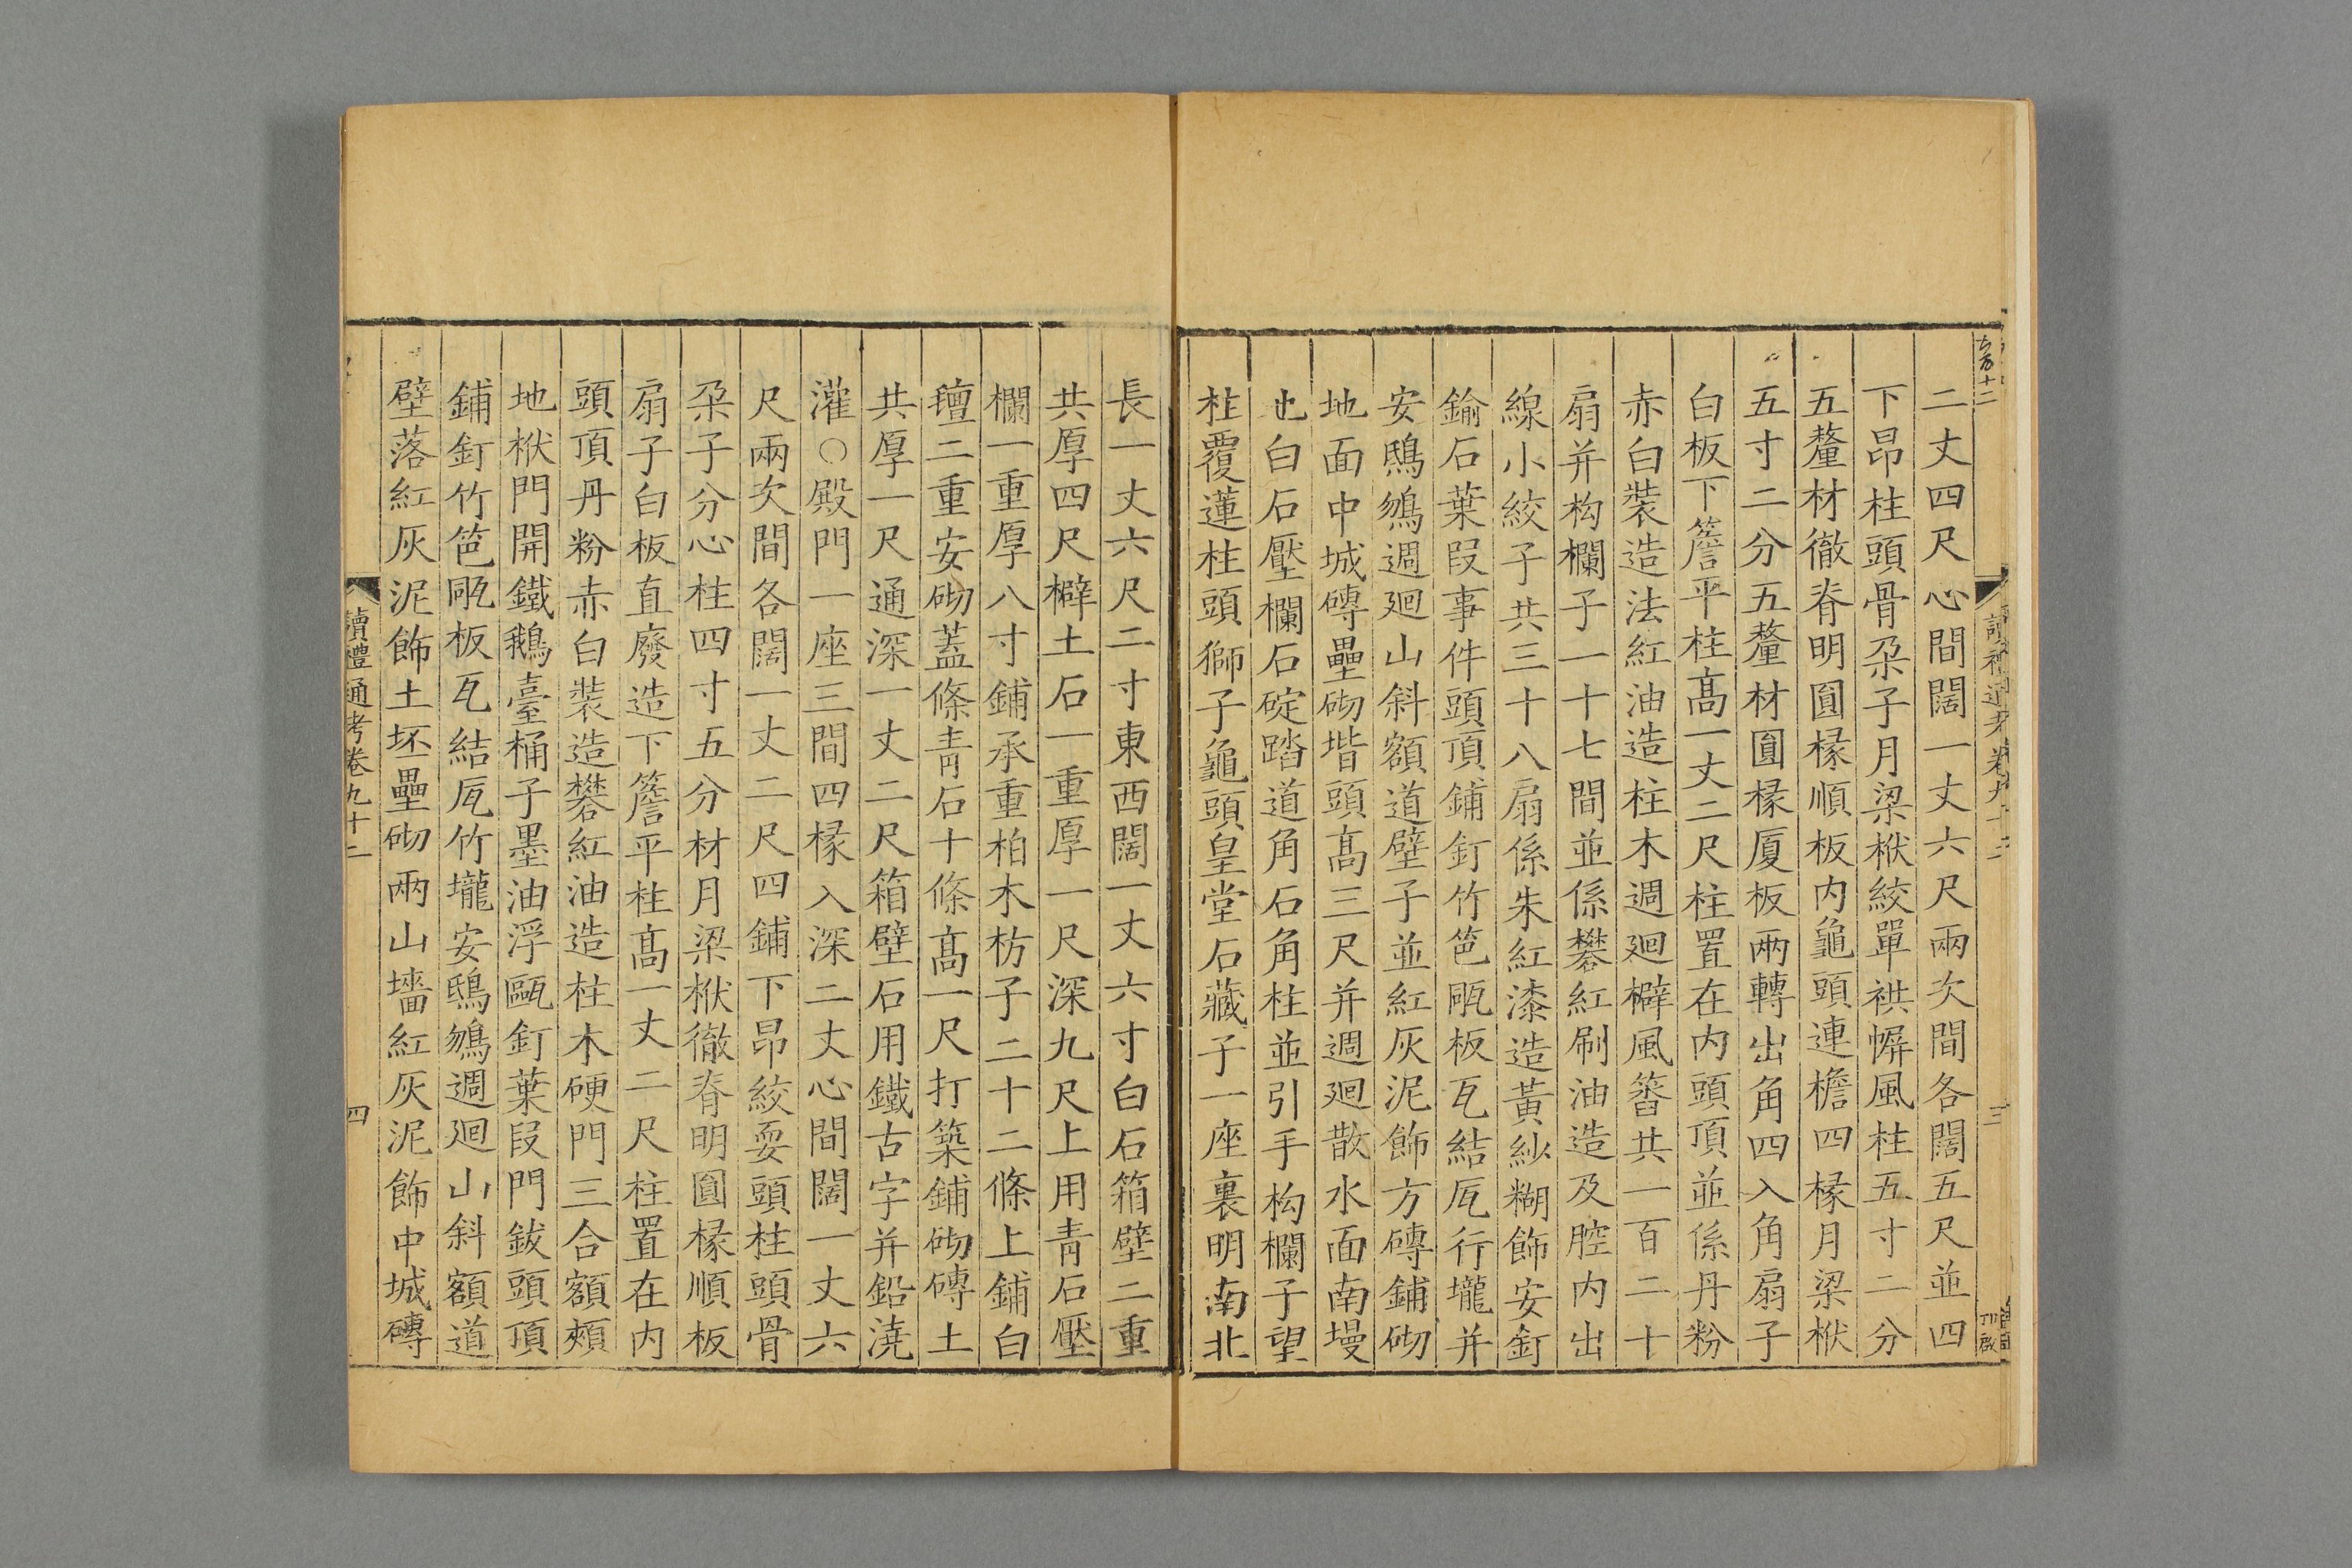 二丈四尺心間闊一丈六尺兩次間各闊五尺並四
下昂柱頭骨朶子月梁栿絞單栱㡤風柱五寸二分
五釐材徹脊明圓椽順板内龜頭連檐四椽月梁栿
五寸二分五釐材圓椽厦板兩轉出角四入角扇子
白板下簷平柱髙一丈二尺柱置在内頭頂並係丹粉
赤白裝造法紅油造柱木週迴檘風䈟共一百二十
扇并构欄子一十七間並係礬紅刷油造及腔内出
線小絞子共三十八扇係朱紅漆造黃紗糊飾安釘
鍮石葉段事件頭頂鋪釘竹笆瓪板瓦結瓦行壠并
安鴟鵂週迴山斜額道壁子並紅灰泥飾方磚鋪砌
地面中城磚壘砌堦頭髙三尺并週迴散水面南墁
也白石壓欄石碇踏道角石角柱並引手构欄子望
柱覆蓮柱頭獅子龜頭皇堂石藏子一座裏明南北
長一丈六尺二寸東西闊一丈六寸白石箱壁二重
共厚四尺檘土石一重厚一尺深九尺上用靑石壓
欄一重厚八寸鋪承重柏木枋子二十二條上鋪白
氊二重安砌蓋條靑石十條髙一尺打築鋪砌磚土
共厚一尺通深一丈二尺箱壁石用鐵古字并鉛澆
灌○殿門一座三間四椽入深二丈心間闊一丈六
尺兩次間各闊一丈二尺四鋪下昂絞耍頭柱頭骨
朶子分心柱四寸五分材月梁栿徹脊明圓椽順板
扇子白板直廢造下簷平柱髙一丈二尺柱置在内
頭頂丹粉赤白裝造礬紅油造柱木硬門三合額頰
地栿門開鐵鵝臺桶子墨油浮甌釘葉段門鈸頭頂
鋪釘竹笆瓪板瓦結瓦竹壠安鴟鵂週迴山斜額道
壁落紅灰泥飾土坯壘砌兩山墻紅灰泥飾中城磚
讀禮通考卷九十二
四